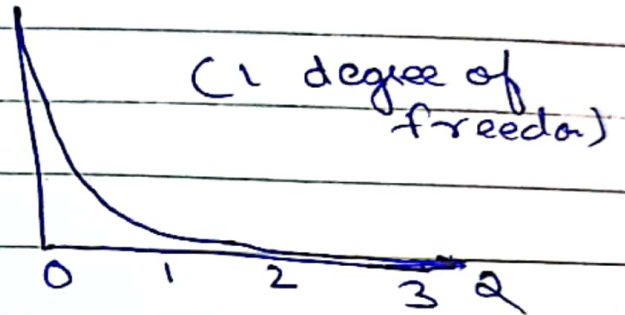 (1 degree of
freedom)
0 1 2 3 Q